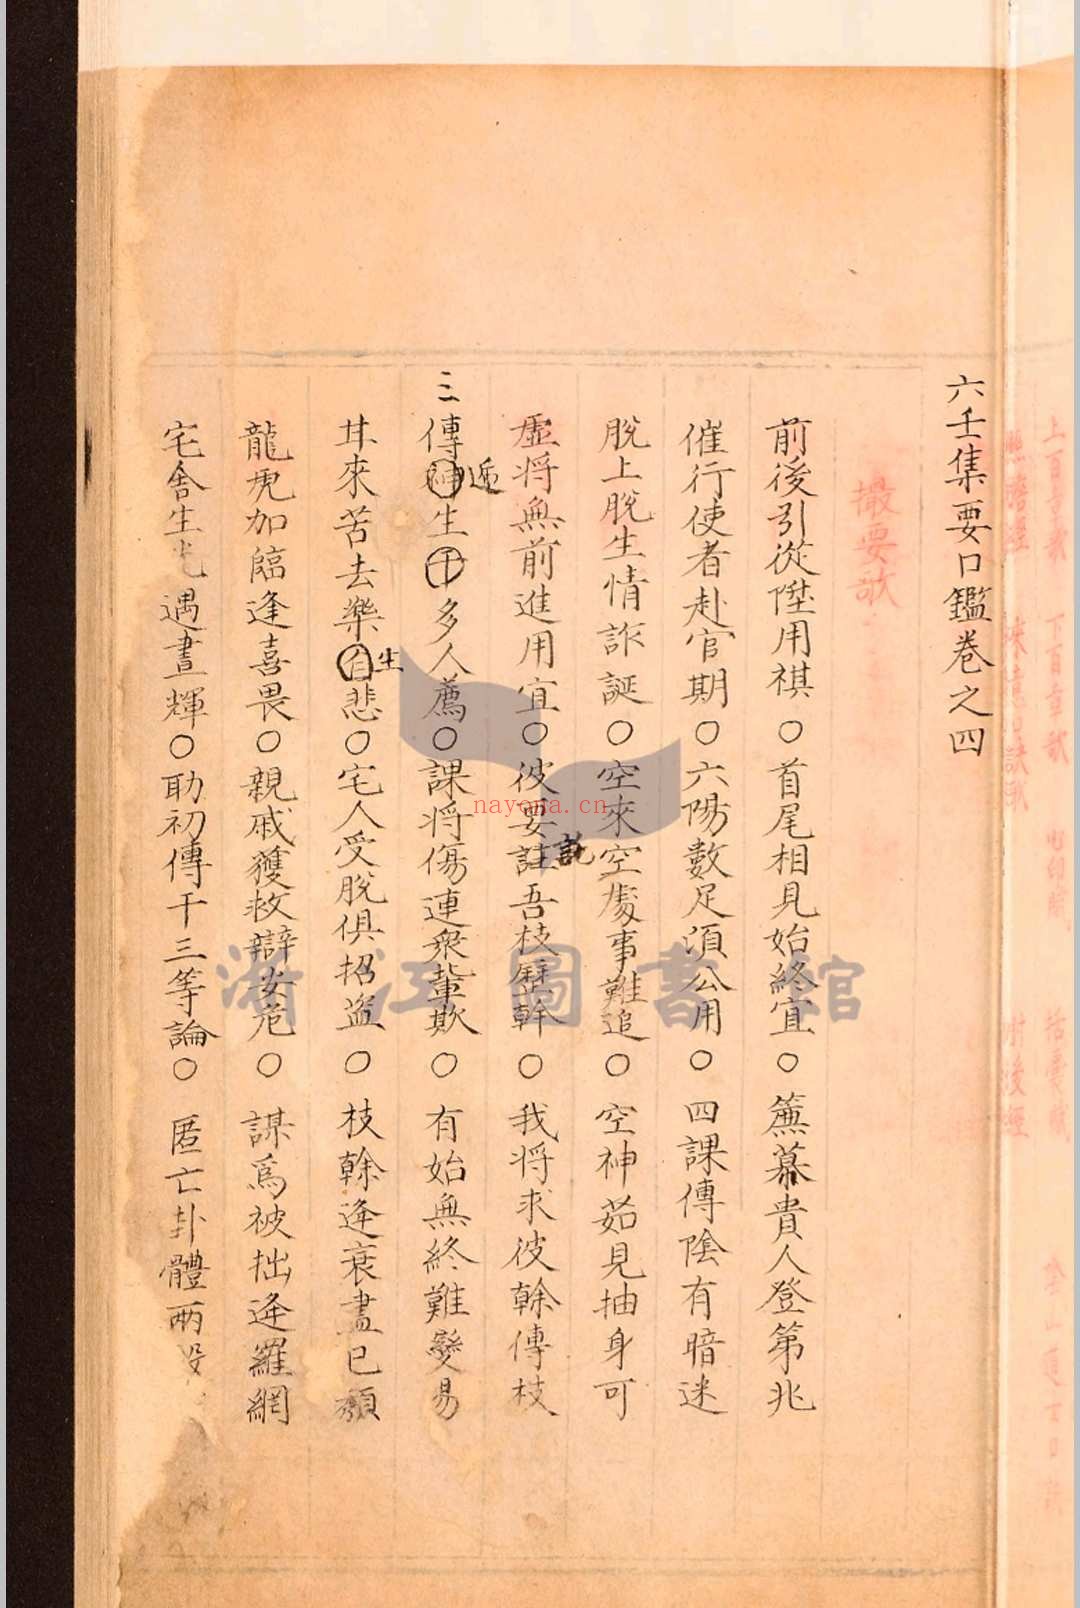 六壬集要口鑑卷之四
撮要歌
前後引從陞用祺○首尾相見始終宜○簾幕貴人登第兆
催行使者赴官期○六陽數足須公用○四課傳陰有暗迷
脫上脫生情詐誕○空來空處事難追○空神茹見抽身可
虛將無前進用宜○彼要註說吾枝歷幹○我將求彼幹傳枝
三傳遞生干多人薦○課將傷連衆輩欺○有始無終難變易
廾來苦去樂自生悲○宅人受脫俱招盜○枝幹逢衰盡已頹
龍虎加臨逢喜畏○親戚獲救辯安危○謀爲被拙逢羅網
宅舍生光遇晝輝○助初傳干三等論○匿亡卦體兩
nayona.cn
浙江圖書館